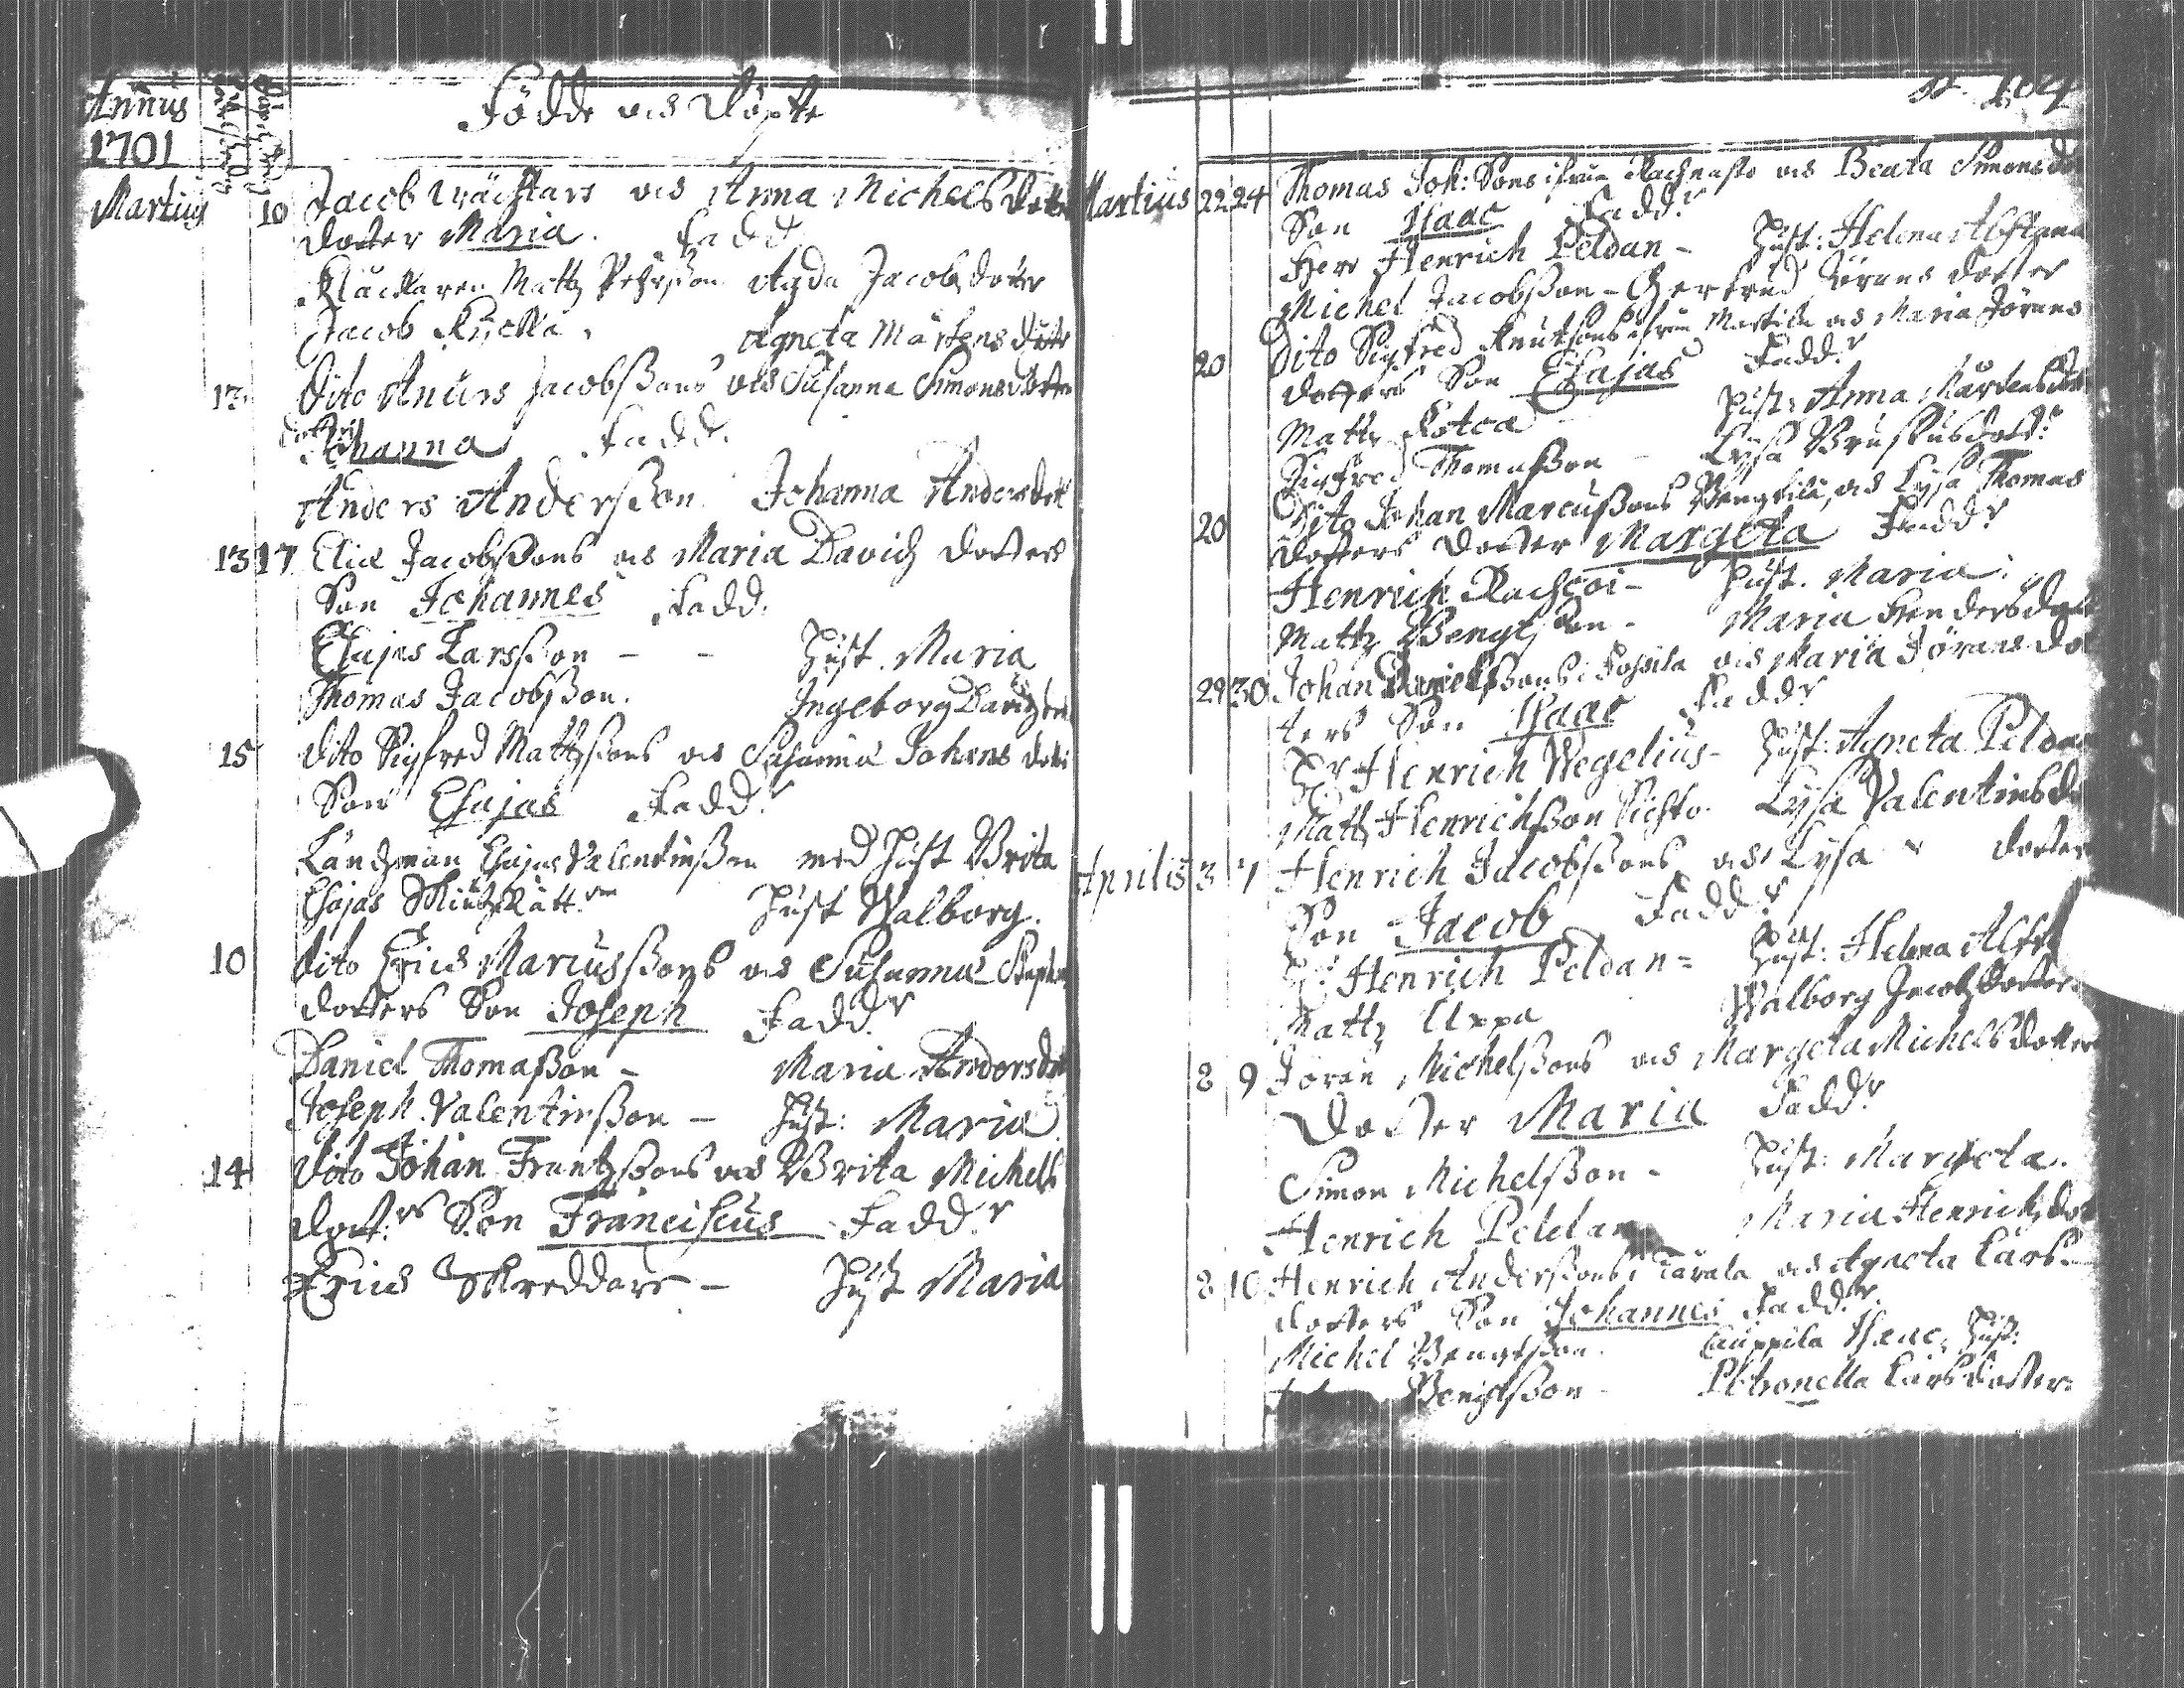 Annus
1701
Födde och Döpte
Martius 10 Jacob Wächtars och Anna Michelsdotter
dotter Maria. Fadd.
Klåckaren Mattz Pehrsson Agda Jacobsdotter
Jacob Agneta Mårtens dotter
13 Dito Anders Jacobßons och Susanna Simonsdotter
dotter
Johanna Fadd.
Anders Anderßon. Johanna Andersdott
13 17 Elie Jacobßons och Maria Davidz dotters
Son Johannes Fadd.
Esajas Larsßon - - Hust. Maria
Thomas Jacobßon. Ingeborg Davidz
15 Dito Sigfred Mattzßons och Susanna Johans
Son Esajas Fadd.r
Ländzman Esajas Valentinßon med Hust Brita
Esajas Hust Walborg.
10 Dito Erics Marcusßons och Susanna
dotters Son Joseph Fadd.r
Daniel Thomaßon - Maria Andersdot
Joseph Valentinßon - Hust: Maria
14 Dito Johan Frantzßons och Brita Michels
dott.rs Son Franciscus Fadd.r
Erich Skreddare - Hust Maria
104
Martius 22 24 Thomas Joh: Sons ifrån och Beata Simonsdo
Son Isaac Fadd.r
Herr Henrich Peldan - Hust: Helena
Michel Jacobßon - Gertrud Jörans dotter
20 Dito Sigfred Knutsons ifrån Martila och Maria Jörans
dotters Son Esajas Fadd.r
Mattz Hust: Anna Mårtensdot
Sigfred Thomaßon - Lysa
20 Dito Johan Marcusßons och Lysa Thomas
dotters dotter Margeta Fadd.r
Henrich - Hust. Maria.
Mattz Bengtßon - Maria Hendersdott
29 30 Johan Danielßons och Maria Jörans do
ters Son Isaac Fadd.r
H.r Henrich Wegelius - Hust: Agneta Pelda
Mattz Henrichßon Lysa Valentinsd
Aprilis 3 7 Henrich Jacobßons och Lysa dotters
Son Jacob Fadd.r
H.r Henrich Peldan = Hust: Helena
Mattz Uppa Walborg Jacobzdotter
8 9 Jören Michelßons och Margeta Michelsdotters
Dotter Maria Fadd.r
Simon Michelßon - Hust: Margeta.
Henrich Peldan Maria Henrichzdot
8 10 Henrich Anderßons och Agneta Lars
dotters Son Johannes Fadd.r
Michel Bengtßon. Isaac Hust:
Bengtßon - Petronella Larsdotter